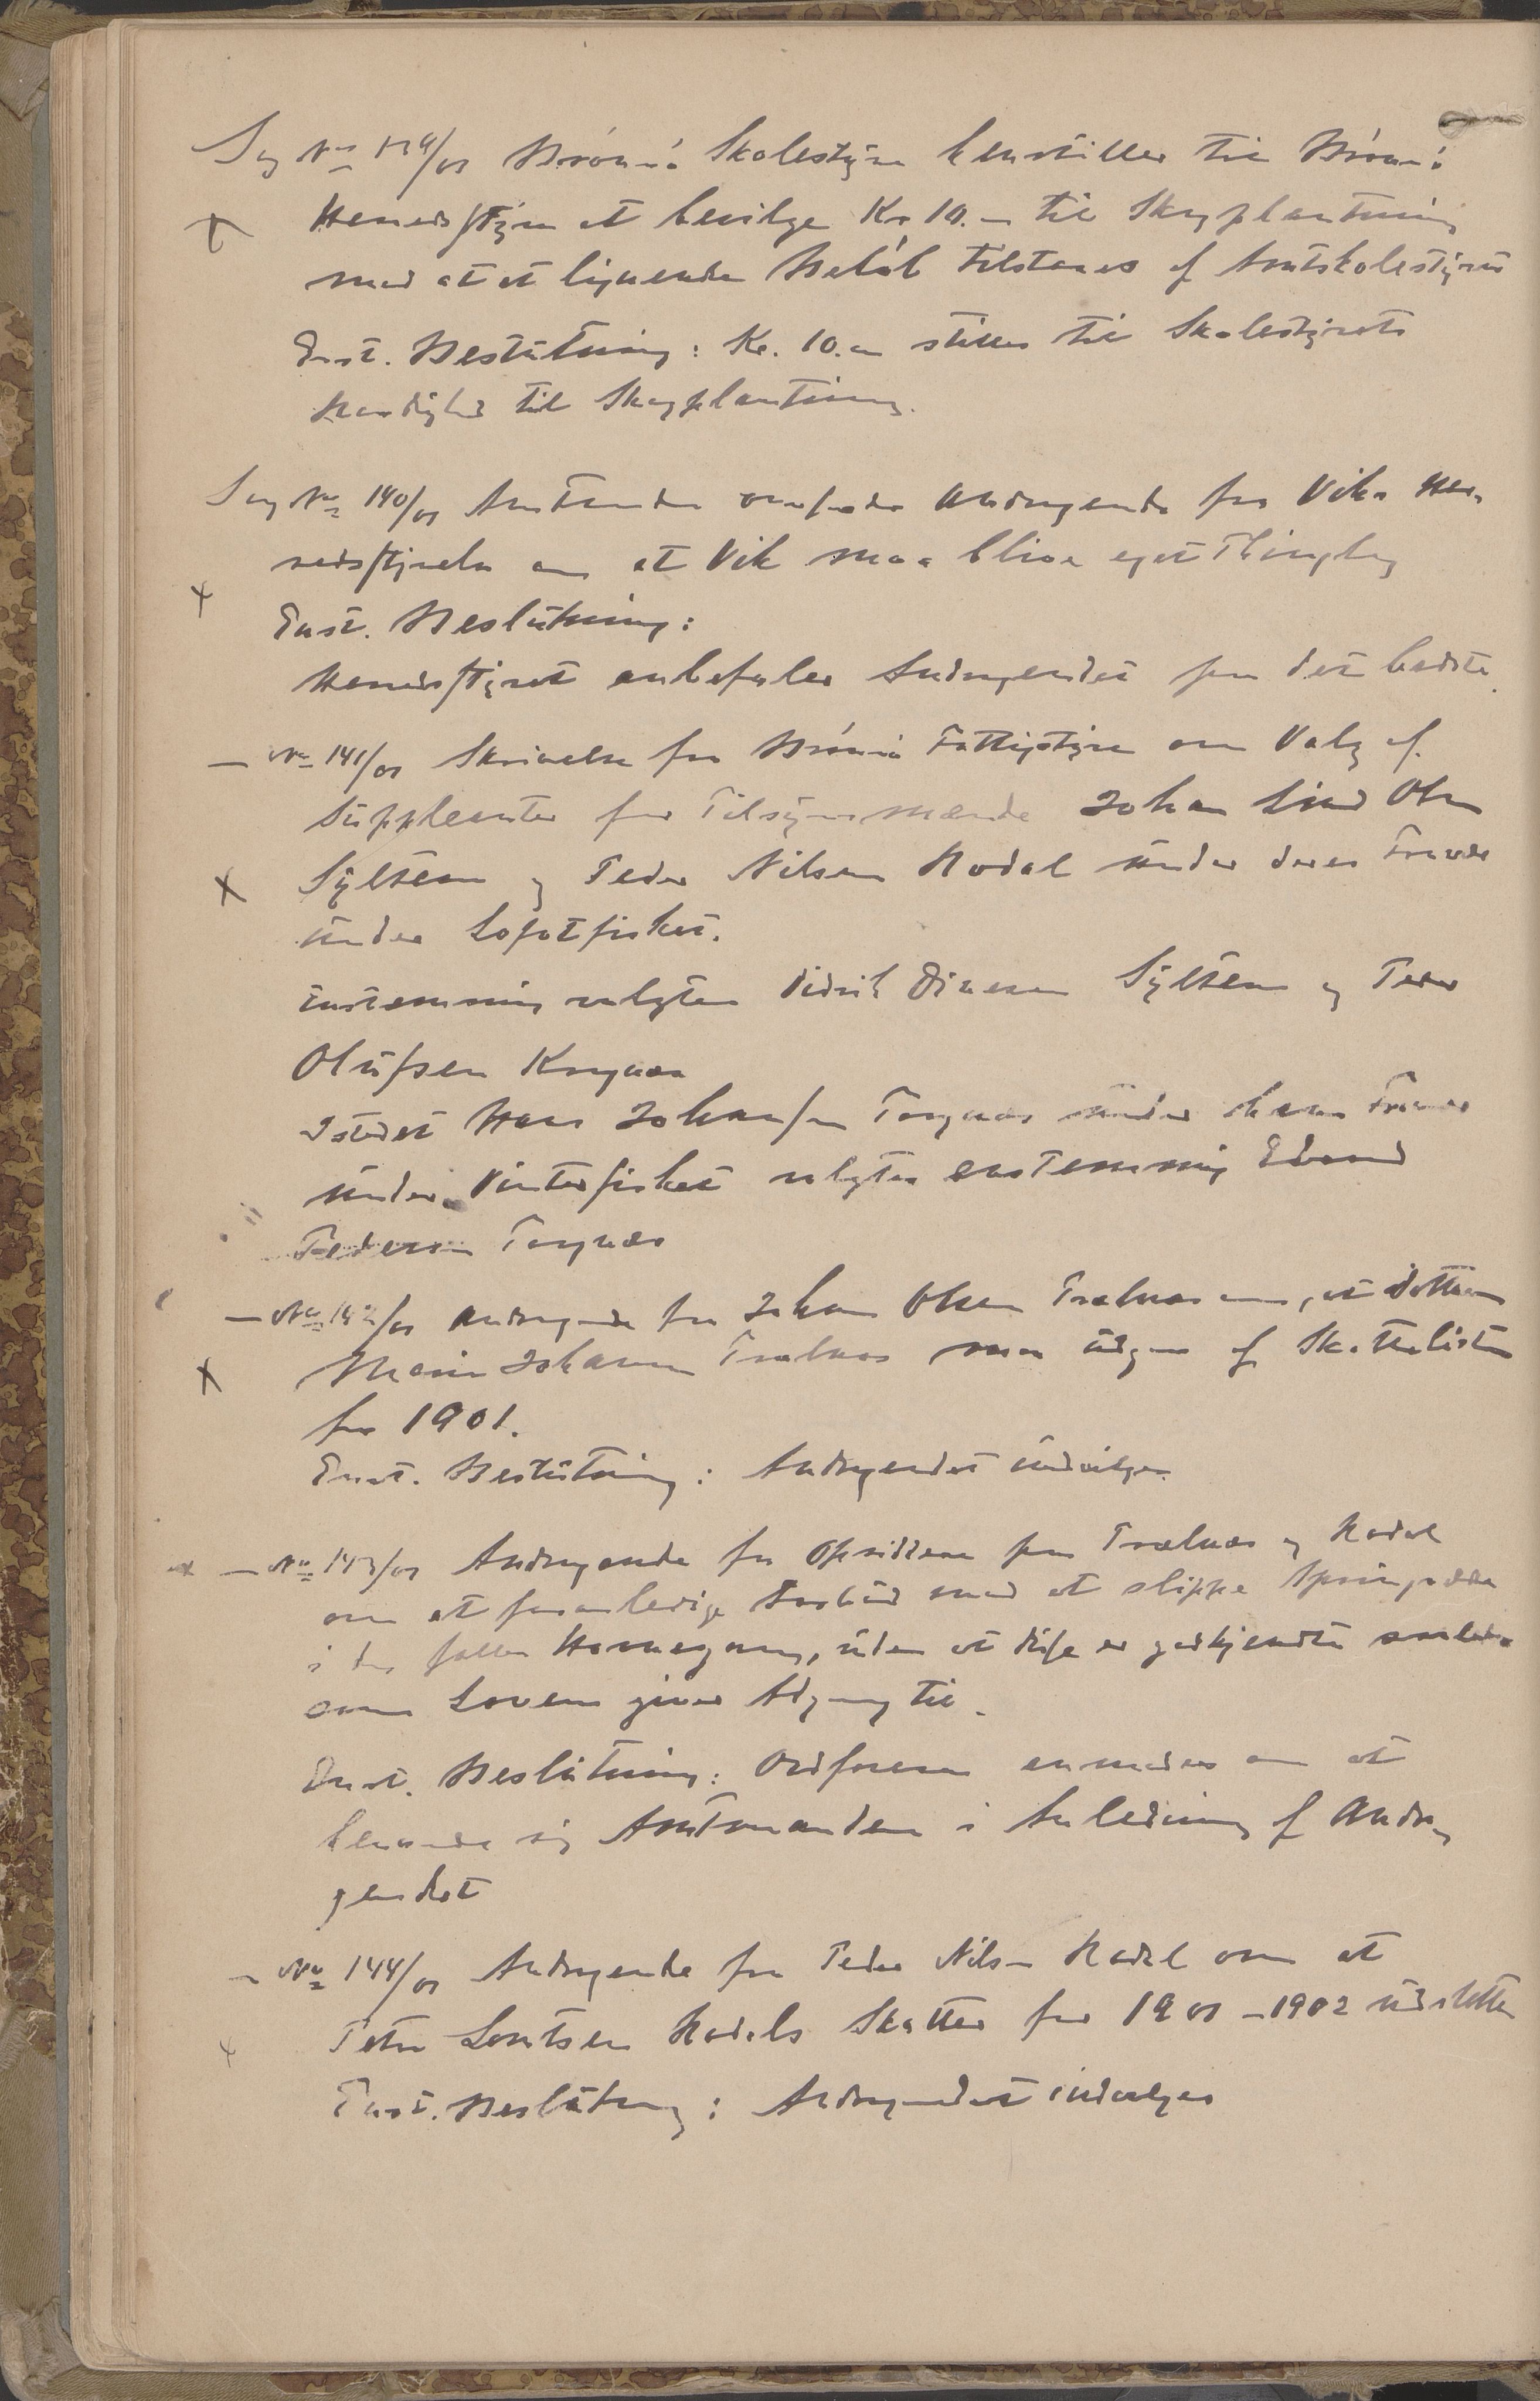 Sag No 139/01 Brønnø Skolestyre henstiller til Brønnø
Herredsstyre at bevilge Kr. 10.- til Skogplantning
mod at et lignende Beløb tilstaaes af Amtskolestyret
Enst. Beslutning: Kr. 10.- stilles til Skolestyrets
Raadighed til Skogplantning.
Sag No 140/01 Amtmanden Andragende fra Viks Her-
redsstyrelse om at Vik maa blive eget Thinglag
Enst. Beslutning:
Herredsstyret anbefaler Andragendet paa det bedste.
— No 141/01 Skrivelse fra Brønnø Fattigstyre om Valg af
Suppleanter for Tilsynsmænde Johan Lind Olsen
Sylten og Peder Nilsen Hodal under deres Fravær
under Lofotfisket.
Enstemmig valgtes Didrik Sylten og Peder
Olufsen
Istedet Hans Johansen Torgnes under hans Fravær
under Vinterfisket valgtes enstemmig Edvard
Pedersen Torgnes
— No 142/01 Andragende fra Johan Olsen Trælnes om, at Datteren
Marie Johansen Trælnes maa udgaa af Skattelisten
for 1901.
Enst. Beslutning: Andragendet indvilges.
— No 143/01 Andragende fra Opsiddere paa Trælnes og Hodal
om at foranledige Forbud mod at slippe
i den fælles Havnegang, uden at disse er godkjendte saaledes
som Loven giver Adgang til.
Enst. Beslutning: Ordføreren anmodes om at
henvende sig Amtmanden i Anledning af Andra-
gendet
— No 144/01 Andragende fra Peder Nilsen Hodal om at
Peter Lorntsen Hodals Skatter for 1901-1902 udslettes
Enst. Beslutning: Andragendet indvilges